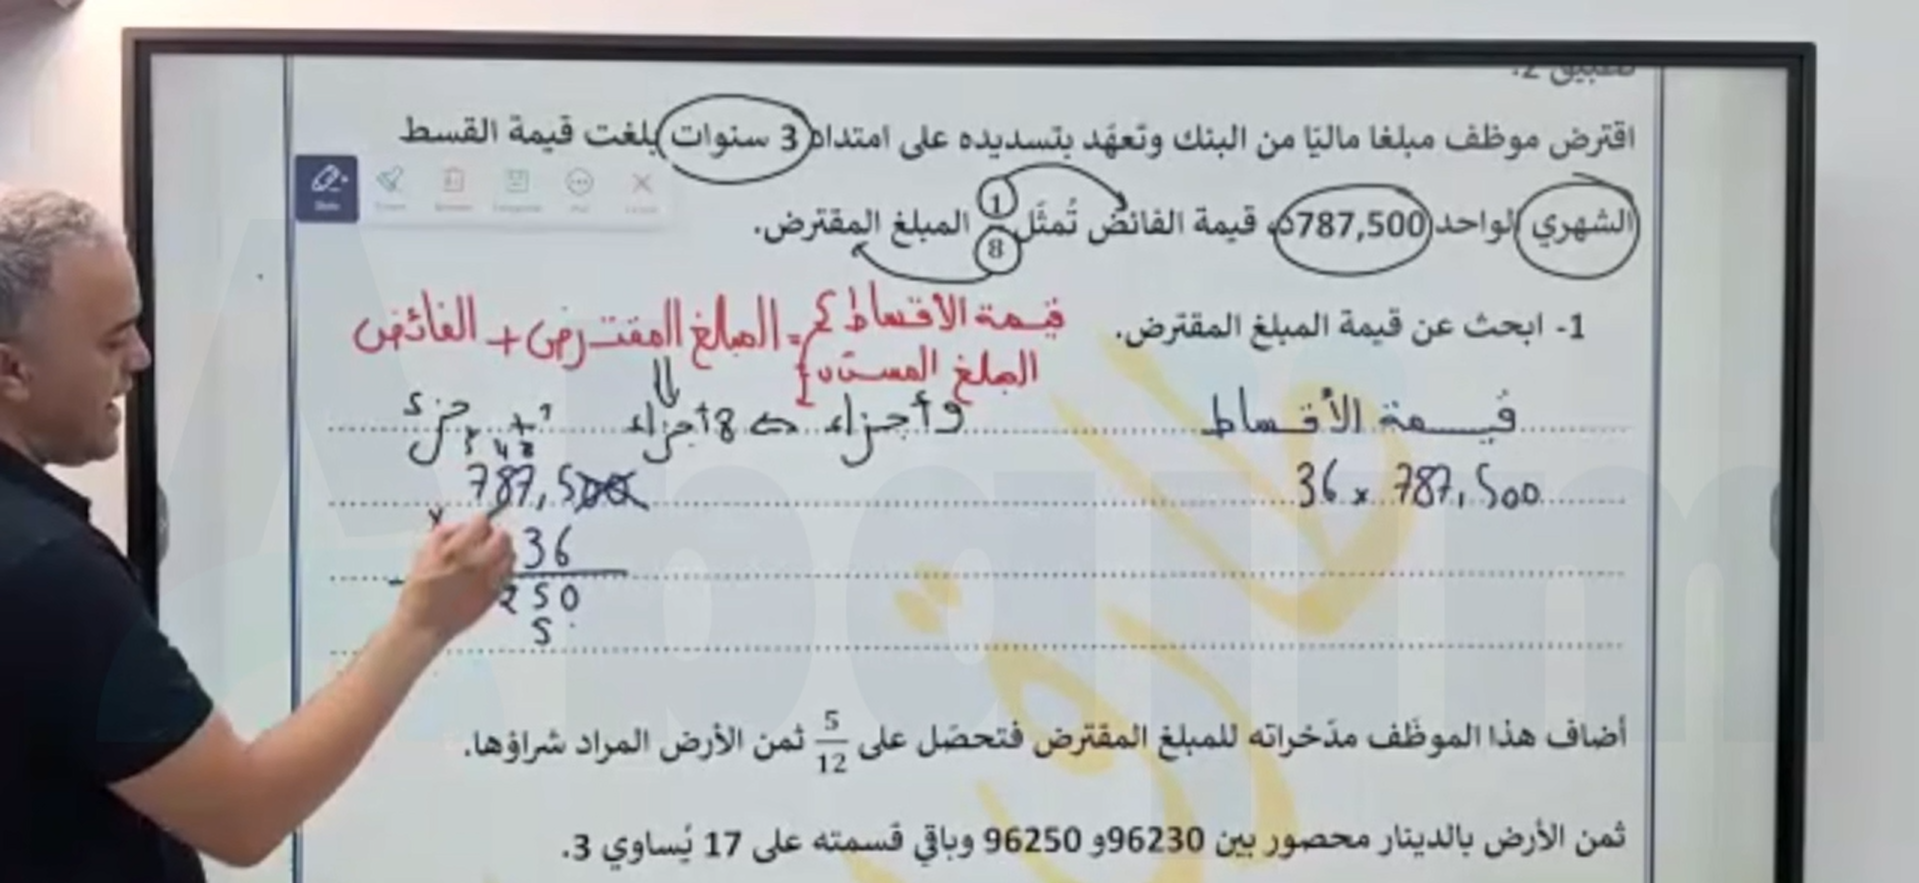 اقترض موظف مبلغا ماليّا من البنك وتعهّد بتسديده على امتداد 3 سنوات بلغت قيمة القسط
الشهري الواحد 787,500د، قيمة الفائض تُمثّل 1/8 المبلغ المقترض.
1- ابحث عن قيمة المبلغ المقترض.
قيمة الاقساط = المبلغ المقترض + الفائض
المبلغ المسدد
قيمة الأقساط
9 أجزاء ⇐ 8 أجزاء + جزء
36 x 787,500
787,500
x
36
250
5
أضاف هذا الموظّف مدّخراته للمبلغ المقترض فتحصّل على 5/12 ثمن الأرض المراد شراؤها.
ثمن الأرض بالدينار محصور بين 96230 و 96250 وباقي قسمته على 17 يُساوي 3.